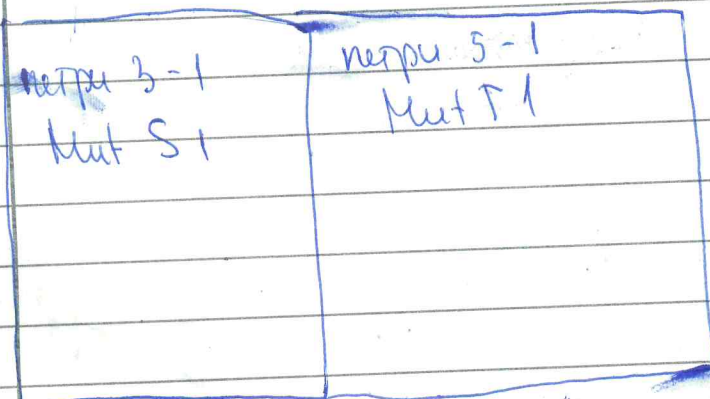 петри 3-1
Mut S1
петри 5-1
Mut T1